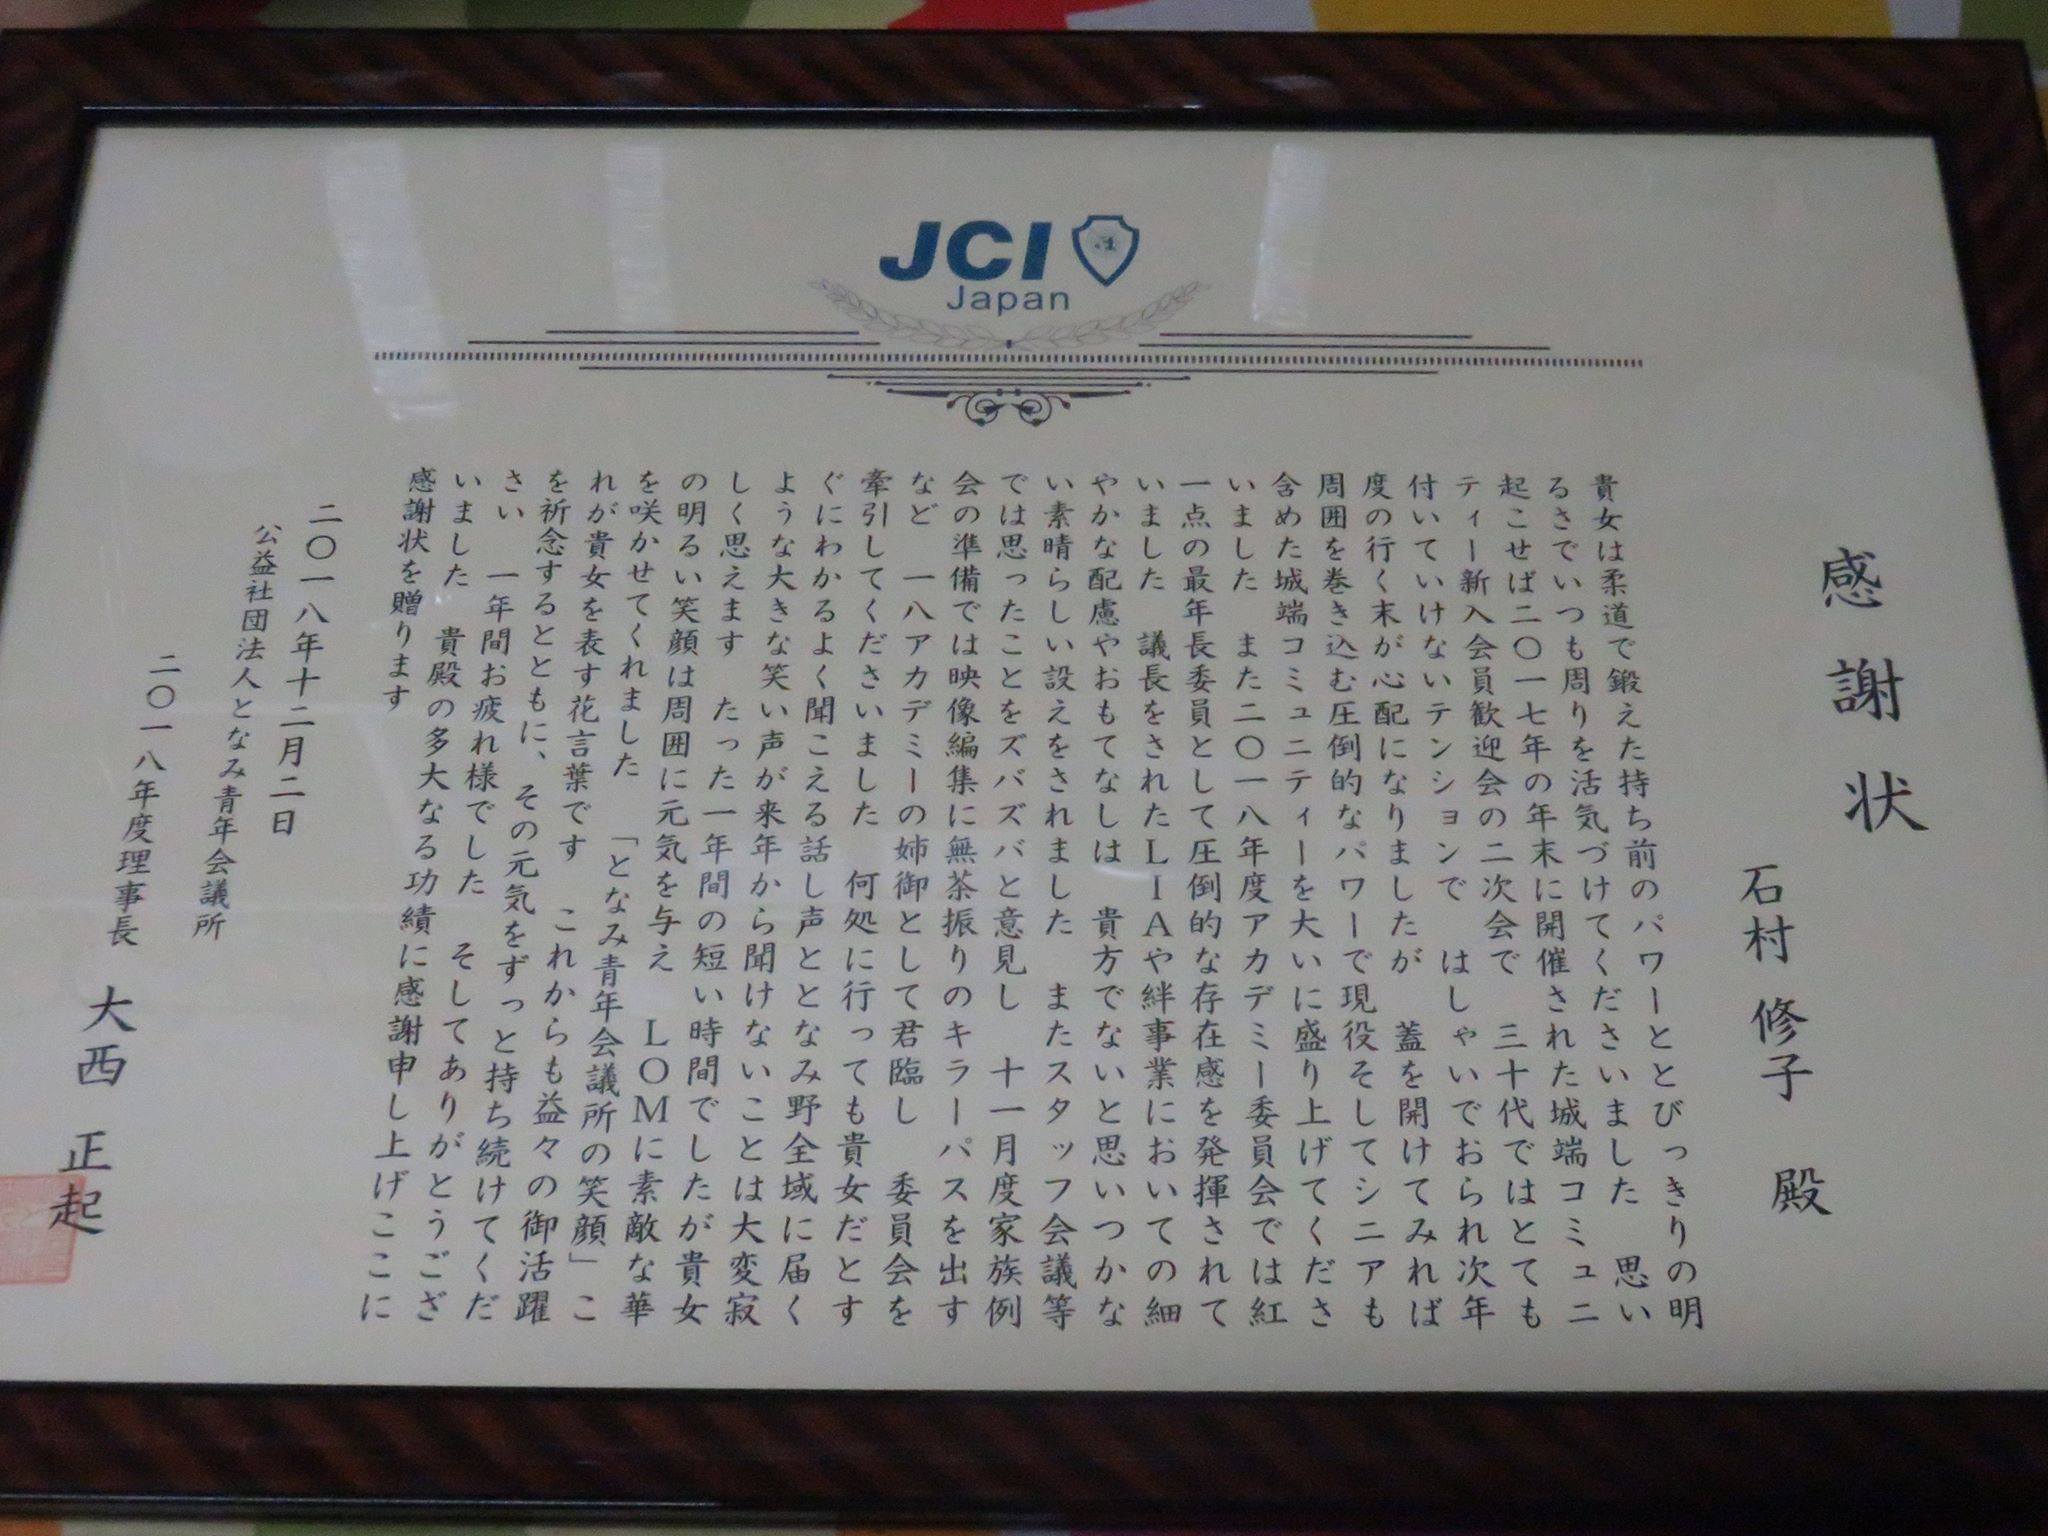 JCI
Japan
感謝状
石村 修子 殿
貴女は柔道で鍛えた持ち前のパワーととびっきりの明
るさでいつも周りを活気づけてくださいました 思い
起こせば二〇一七年の年末に開催された城端コミュニ
ティー新入会員歓迎会の二次会で 三十代ではとても
付いていけないテンションで はしゃいでおられ次年
度の行く末が心配になりましたが 蓋を開けてみれば
周囲を巻き込む圧倒的なパワーで現役そしてシニアも
含めた城端コミュニティーを大いに盛り上げてくださ
いました また二〇一八年度アカデミー委員会では紅
一点の最年長委員として圧倒的な存在感を発揮されて
いました 議長をされたLIAや絆事業においての細
やかな配慮やおもてなしは 貴方でないと思いつかな
い素晴らしい設えをされました またスタッフ会議等
では思ったことをズバズバと意見し 十一月度家族例
会の準備では映像編集に無茶振りのキラーパスを出す
など 一八アカデミーの姉御として君臨し 委員会を
牽引してくださいました 何処に行っても貴女だとす
ぐにわかるよく聞こえる話し声ととなみ野全域に届く
ような大きな笑い声が来年から聞けないことは大変寂
しく思えます たった一年間の短い時間でしたが貴女
の明るい笑顔は周囲に元気を与え LOMに素敵な華
を咲かせてくれました 「となみ青年会議所の笑顔」こ
れが貴女を表す花言葉です これからも益々の御活躍
を祈念するとともに、その元気をずっと持ち続けてくだ
さい 一年間お疲れ様でした そしてありがとうござ
いました 貴殿の多大なる功績に感謝申し上げここに
感謝状を贈ります
二〇一八年十二月二日
公益社団法人となみ青年会議所
二〇一八年度理事長 大西 正起